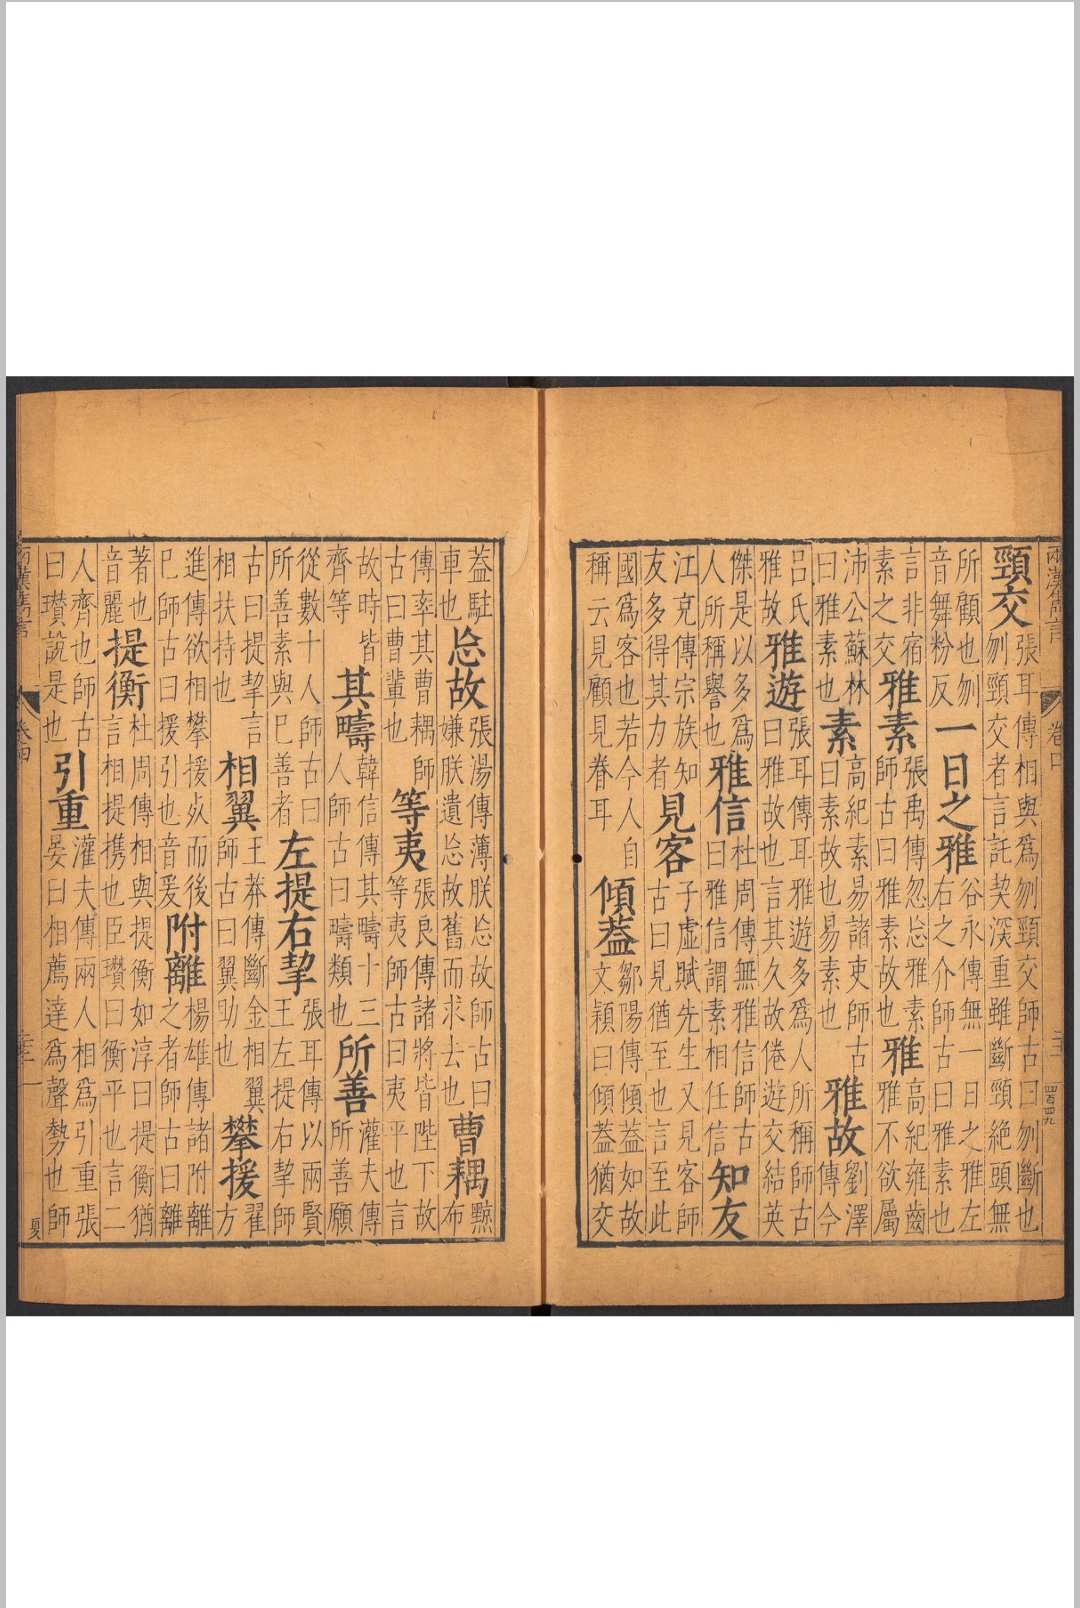 兩漢雋言 卷四
頸交張耳傳相與爲刎頸交師古曰刎斷也刎頸交者言託契深重雖斷頸絕頭無
所顧也刎音舞粉反一日之雅谷永傳無一日之雅左右之介師古曰雅素也
言非宿素之交雅素張禹傳忽忘雅素師古曰雅素故也雅高紀雍齒雅不欲屬
沛公蘇林曰雅素也素高紀素易諸吏師古曰素故也易素也雅故劉澤傳今
呂氏雅故雅遊張耳傳耳雅遊多爲人所稱師古曰雅故也言其久故倦遊交結英
傑是以多爲人所稱譽也雅信杜周傳無雅信師古曰雅信謂素相任信知友
江充傳宗族知友多得其力者見客子虛賦先生又見客師古曰見猶至也言至此
國爲客也若今人自稱云見顧見眷耳傾葢鄒陽傳傾葢如故文穎曰傾葢猶交
葢駐車也忘故張湯傳薄朕忘故師古曰嫌朕遺忘故舊而求去也曹耦黥布
傳率其曹耦師古曰曹輩也等夷張良傳諸將皆陛下故等夷師古曰夷平也言
故時皆齊等其疇韓信傳其疇十三人師古曰疇類也所善灌夫傳所善願
從數十人師古曰所善素與已善者左提右挈張耳傳以兩賢王左提右挈師
古曰提挈言相扶持也相翼王莽傳斷金相翼師古曰翼助也攀援翟方
進傳欲相攀援死而後已師古曰援引也音爰附離楊雄傳諸附離之者師古曰離
著也音麗提衡杜周傳相與提衡如淳曰提衡猶言相提携也臣瓚曰衡平也言二
人齊也師古曰瓚說是也引重灌夫傳兩人相爲引重張晏曰相薦達爲聲勢也師
兩漢雋言 卷四